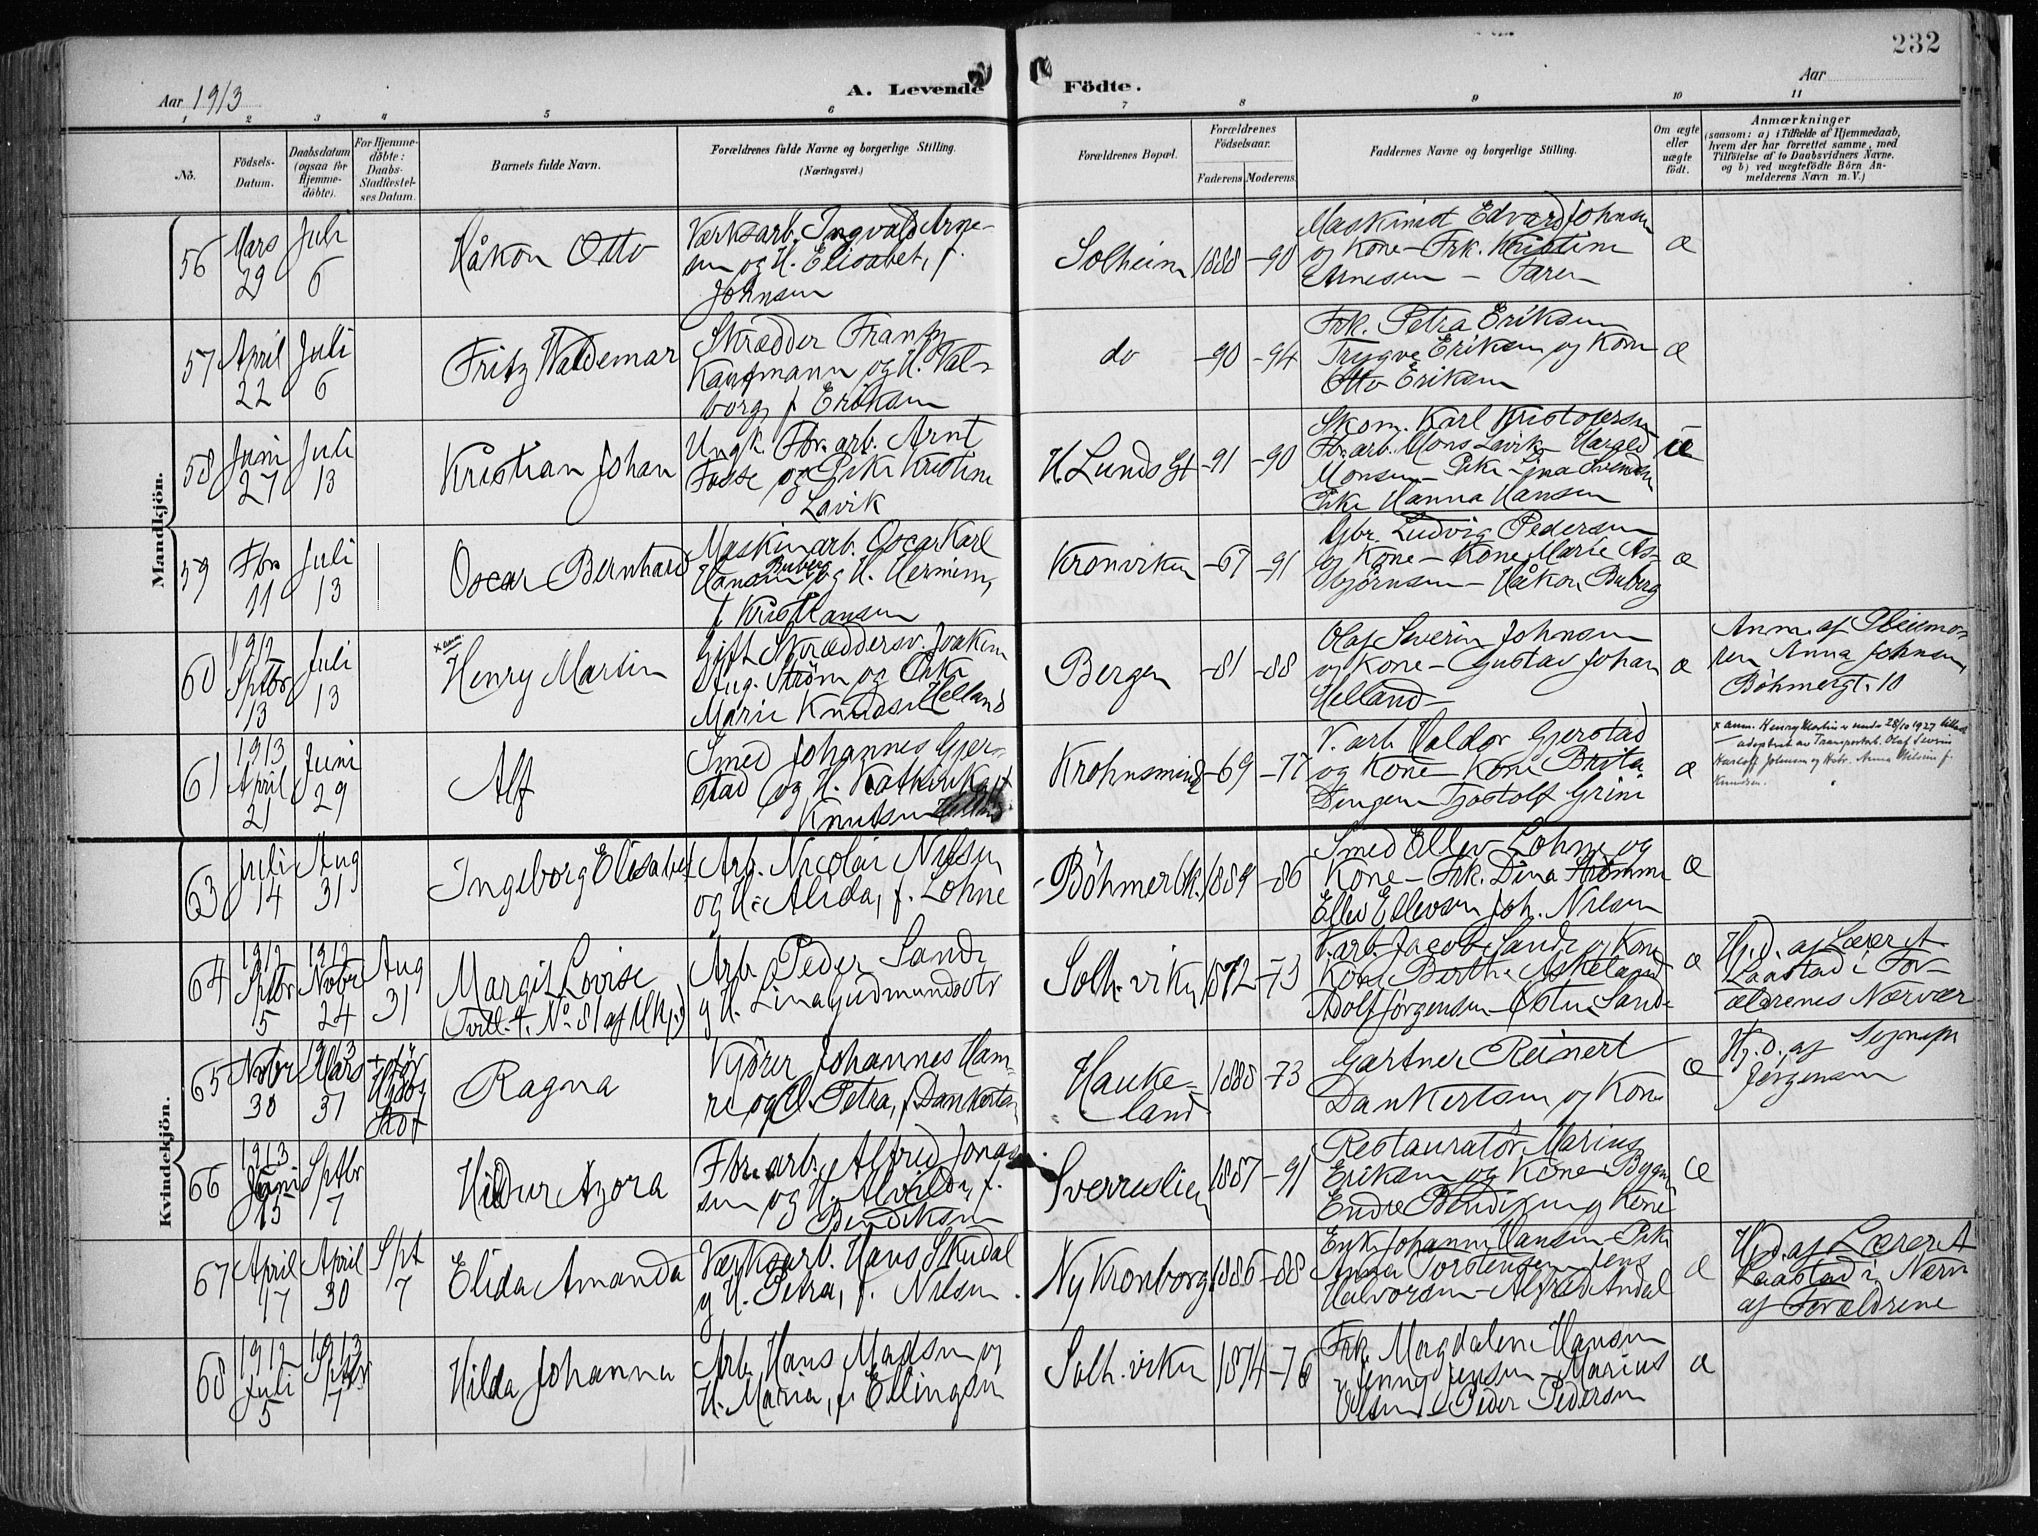 232
Aar 1913
A. Levende Födte.
Aar
1 2 3 4 5 6 7 8 9 10 11
No.
Födsels-
Datum.
Daabsdatum
(ogsaa for
Hjemme-
döbte).
For Hjemme-
döbte:
Daabs-
Stadfæstel-
ses Datum.
Barnets fulde Navn.
Forældrenes fulde Navne og borgerlige Stilling.
(Næringsvei.)
Forældrenes Bopæl.
Forældrenes
Födselsaar.
Faderens Moderens.
Faddernes Navne og borgerlige Stilling.
Om ægte
eller
uægte
födt.
Anmærkninger
(saasom: a) i Tilfælde af Hjemmedaab,
hvem der har forrettet samme, med
Tilföielse af to Daabsvidners Navne,
og b) ved uægtefödte Börn An-
melderens Navn m. V.)
Mandkjön.
56
Mars
29
Juli
6
Håkon Otto
Værksarb. Ingvald Arne-
sen og H. Elisabet, f.
Johnsen
Solheim
1888 -90
Maskinist Edvard Johnsen
og Kone - Frk. Kristine
Arnesen - Faren
æ
57
April
22
Juli
6
Fritz Waldemar
Skrædder Frantz
Kaufmann og H. Val-
borg, f. Eriksen
do
-90 -94
Frk. Petra Eriksen
Trygve Eriksen og Kone
Otto Eriksen
æ
58
Juni
27
Juli
13
Kristian Johan
Ungk. Fbr. arb. Arnt
Fosse og Pike Kristine
Lavik
H. Lunds Gt
-91 -90
Skom. Karl Kristofersen
Fbr. arb. Mons Lavik - Harald
Monsen - Pike Lina Svendsen
Pike Hanna Hansen
59
Fbr.
11
Juli
13
Oscar Bernhard
Maskinarb. Oscar Karl
Hansen Buberg og H. Hermine,
f. Kristiansen
Kronviken
-67 -91
Gbr. Ludvig Pedersen
og Kone - Kone Marie As-
bjørnsen - Håkon Buberg
æ
60
1912
Sptbr
13
Juli
13
x anm.
Henry Martin
Gift Skræddersv. Joakim
Aug. Strøm og Enke
Marie Knudsen Helland
Bergen
-81 -88
Olaf Severin Johnsen
og Kone - Gustav Johan
Helland -
æ
Anm. af Pleiemo-
ren Anna Johnsen
Böhmergt. 10
61
1913
April
21
Juni
29
Alf
Smed Johannes Gjer-
stad og H. Kathrine, f.
Knutsen
Krohnsminde
-69 -77
V. arb. Haldor Gjerstad
og Kone - Kone Brita
Dengen Tjostolf Grim
æ
x anm. Henry Martin er under 28/10 1927
adoptert av Transportarb. Olaf Severin
Johnsen og Hstr. Anna Nilsine f.
Knudsen.
Kvindekjön.
63
Juli
14
Aug
31
Ingeborg Elisabet
Arb. Nicolai Nilsen
og H. Alida, f. Lohne
Böhmerbk.
1889 -86
Smed Ellev Lohne og
Kone - Frk. Dina Strømme
Ellev Ellevsen Joh. Nilsen
æ
64
1912
Sptbr
5
1912
Novbr
24
Aug
31
Margit Lovise
(Tvill. t. No. 81 af Mkj.)
Arb. Peder Sande
og H. Lina Gudmundsdtr
Solh. viken
1872 -73
V. arb. Jacob Sande og Kone
Kone Berthe Askeland
Adolf Jørgensen - Østen Sande
æ
Hj. d. af Lærer A.
Laastad i For-
ældrenes Nærvær
65
Novbr
30
1913
Mars
31
+ før
Hjdbs
Stdf
Ragna
Kjører Johannes Ham-
re og H. Petra, f. Dankertsen
Hauke-
land
1888 -73
Gartner Reinert
Dankertsen og Kone
æ
Hj. d. af Sognepr
Jørgensen
66
1913
Juni
15
Sptbr
7
Hildur Azora
Fbr. arb. Alfred Jonas-
sen og H. Alvilda, f.
Bendiksen
Sverreslien
1887 -91
Restauratør Marius
Eriksen og Kone - Bygm
Endre Bendixen og Kone
æ
67
April
17
April
30
Spt
7
Elida Amanda
Værksarb. Hans Skudal
og H. Petra, f. Nilsen
Ny Kronborg
1886 -88
Enk. Johanne Hansen - Pike
Anna Torstensen - Jens
Halvorsen - Alfred Andal
æ
Hj. d. af Lærer A
Laastad i Nærv
af Forældrene
68
1912
Juli
5
1913
Sptbr
7
Hilda Johanna
Arb. Hans Madsen og
H. Maria, f. Ellingsen
Solh. viken
1874 -76
Frk. Magdalene Hansen
Jenny Jensen - Marius
Olsen - Peder Pedersen
æ